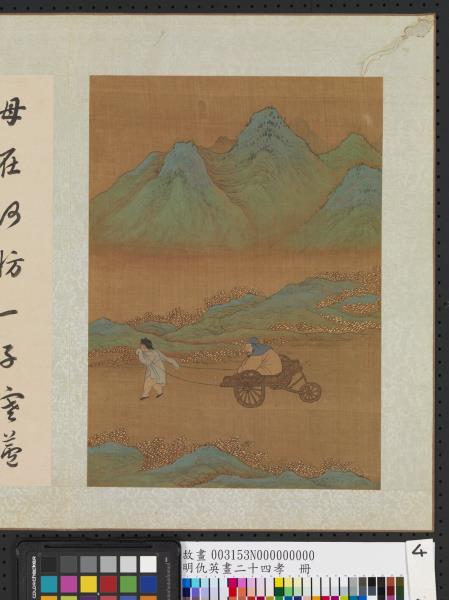 母在何妨一子寒蘆
故畫 003153N000000000
明仇英畫二十四孝 冊
4